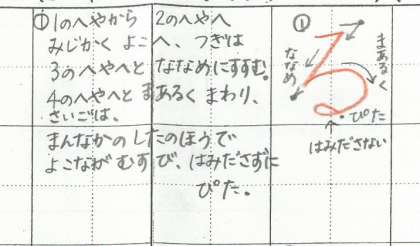 ①1のへやから 2のへやへ
みじかく よこへ、つぎは
3のへやへと ななめにすすむ。
4のへやへと まあるく まわり、
さいごは、
まんなかの したのほうで
よこなが むすび、はみださずに
ぴた。
①
る
ななめ
まあるく
ぴた
はみださない